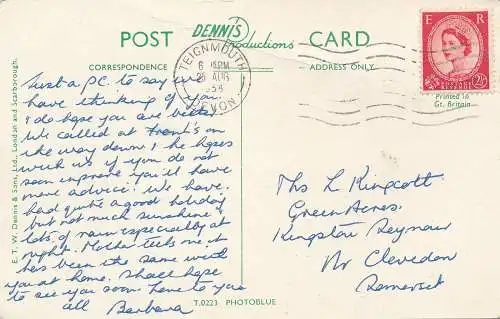 POST DENNIS Productions CARD
CORRESPONDENCE ADDRESS ONLY
TEIGNMOUTH
6 PM
AUG
DEVON
E R
POSTAGE REVENUE
2½
Printed in
Gt. Britain
Just a P.C. to say we
have thinking of you.
I do hope you are better.
We called at on
the way down & he hopes
with us if you do not
soon improve you'll have
more advice. We have
had quite a good holiday
but not much sunshine &
lots of rain especially at
night. Mother tells me it
has been the same with
you at home. Shall hope
to see you soon love to you
all Barbara
Mrs L Kingcott
Green Acres,
Kingston Seymour
Nr Clevedon
Somerset
E. T. W. Dennis & Sons, Ltd., London and Scarborough.
T.0223 PHOTOBLUE